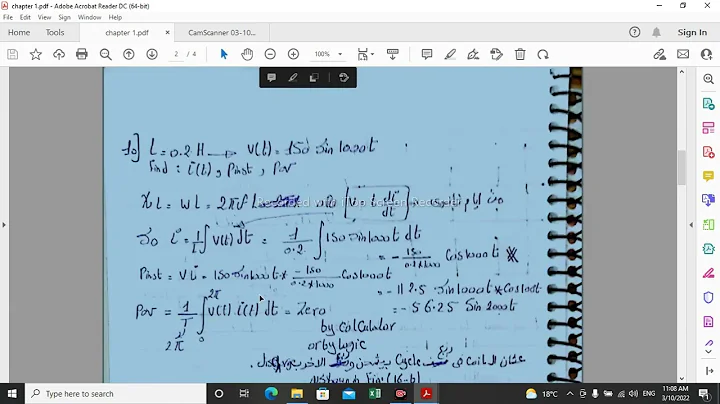 chapter 1.pdf - Adobe Acrobat Reader DC (64-bit)
File Edit View Sign Window Help
Home Tools chapter 1.pdf × CamScanner 03-10... Sign In
2 / 4 100%
10] L = 0.2 H → v(t) = 150 Sin 1000t
Find : i(t) , Pinst , Pav
XL = WL = 2πfL
Recorded with iTop Screen Recorder
So i = 1/L ∫ v(t) dt = 1/0.2 ∫ 150 sin 1000t dt
= - 150/0.2*1000 Cos 1000t
Pinst = V i = 150 sin 1000t * - 150/0.2*1000 Cos 1000t
= -112.5 Sin 1000t * Cos 1000t
= -56.25 Sin 2000t
Pav = 1/T ∫ v(t) i(t) dt = Zero
2π 0 2π
by Calculator
or by Logic
Cycle
Fig (16-b)
Type here to search
18°C ENG 11:08 AM
3/10/2022